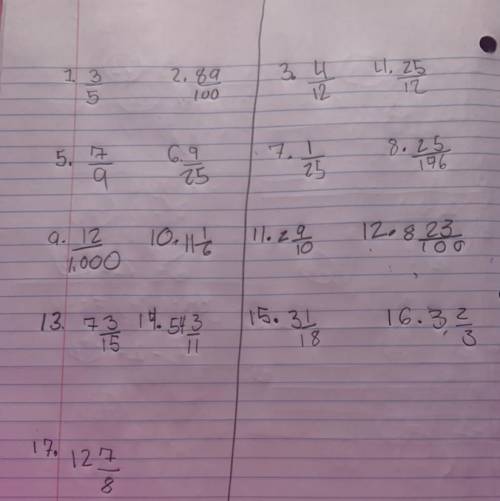 1. 3/5 2. 89/100 3. 4/12 4. 25/12
5. 7/9 6. 9/25 7. 1/25 8. 25/196
9. 12/1,000 10. 11 1/6 11. 2 9/10 12. 8 23/100
13. 7 3/15 14. 54 3/11 15. 3 1/18 16. 3 2/3
17. 12 7/8